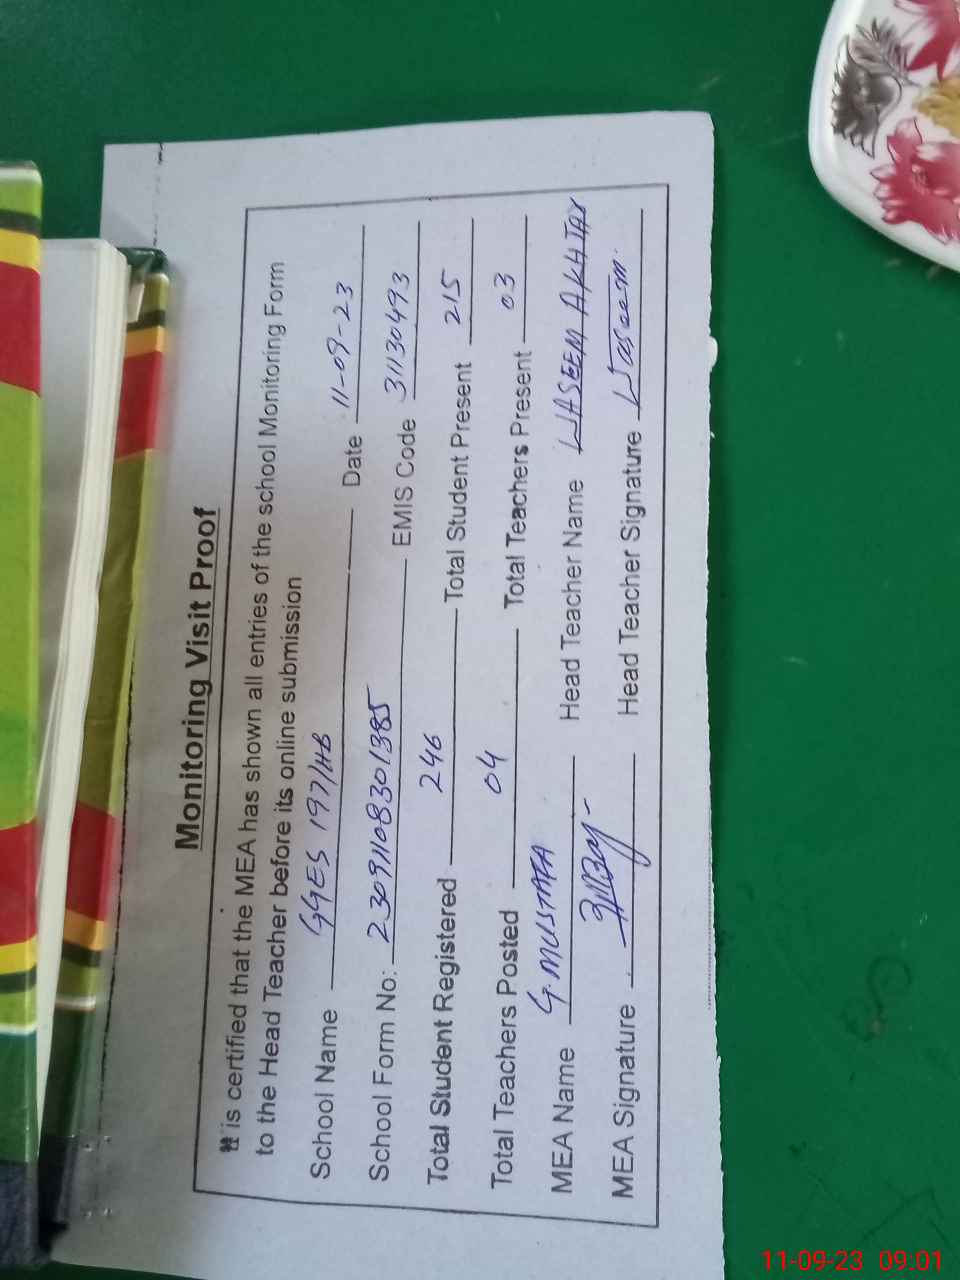 Monitoring Visit Proof
It is certified that the MEA has shown all entries of the school Monitoring Form
to the Head Teacher before its online submission
School Name GGES 197/HB Date 11-09-23
School Form No: 23091108301385 EMIS Code 31130493
Total Student Registered 246 Total Student Present 215
Total Teachers Posted 04 Total Teachers Present 03
MEA Name G. MUSTAFA Head Teacher Name WASEEM AKHTAR
MEA Signature Head Teacher Signature Waseem
11-09-23 09:01